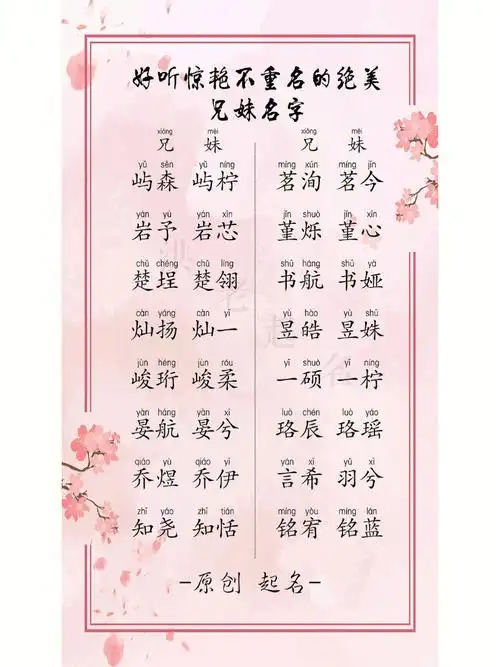 好听惊艳不重名的绝美
兄妹名字
xiōng mèi xiōng mèi
兄 妹 兄 妹
yǔ sēn yǔ níng míng xún míng jīn
屿森 屿柠 茗洵 茗今
yán yǔ yán xīn jǐn shuò jǐn xīn
岩予 岩芯 堇烁 堇心
chǔ chéng chǔ líng shū háng shū yà
楚埕 楚翎 书航 书娅
càn yáng càn yī yù hào yù shū
灿扬 灿一 昱皓 昱姝
jùn héng jùn róu yī shuò yī níng
峻珩 峻柔 一硕 一柠
yàn háng yàn xī luò chén luò yáo
晏航 晏兮 珞辰 珞瑶
qiáo yù qiáo yī yán xī yǔ xī
乔煜 乔伊 言希 羽兮
zhī yáo zhī tián míng yòu míng lán
知尧 知恬 铭宥 铭蓝
-原创 起名-